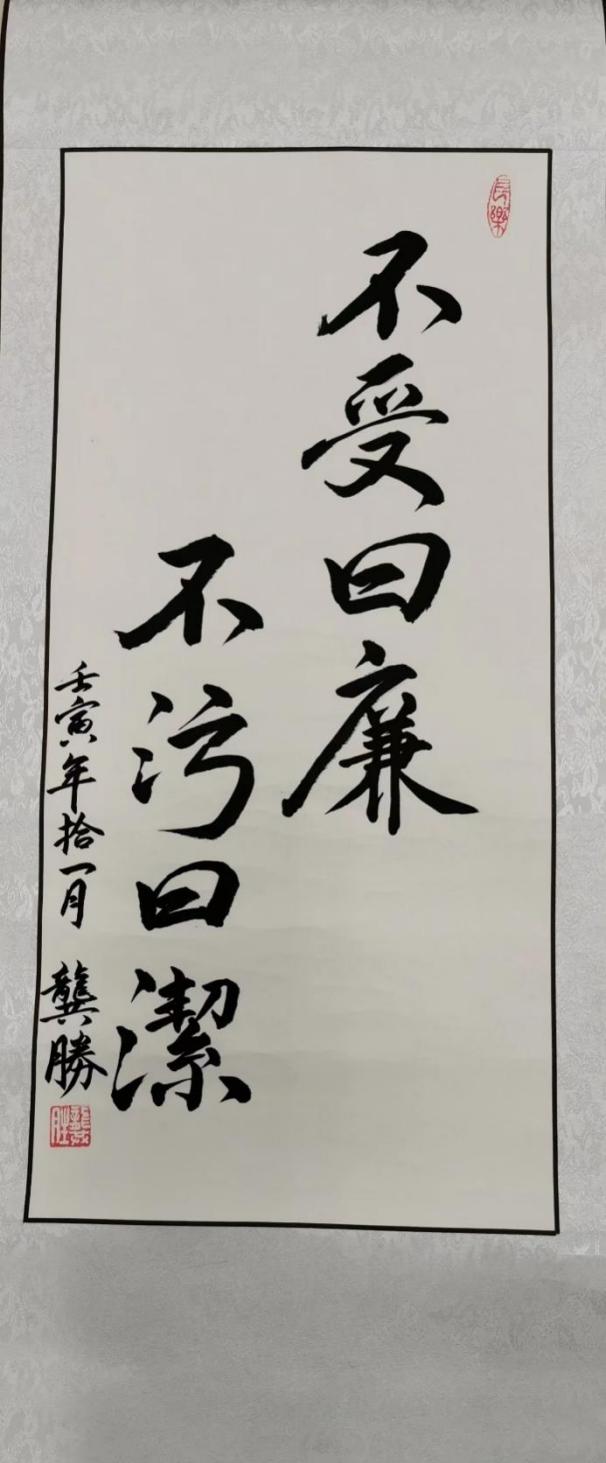 長樂
不受曰廉
不污曰潔
壬寅年拾一月 龔勝
龔胜